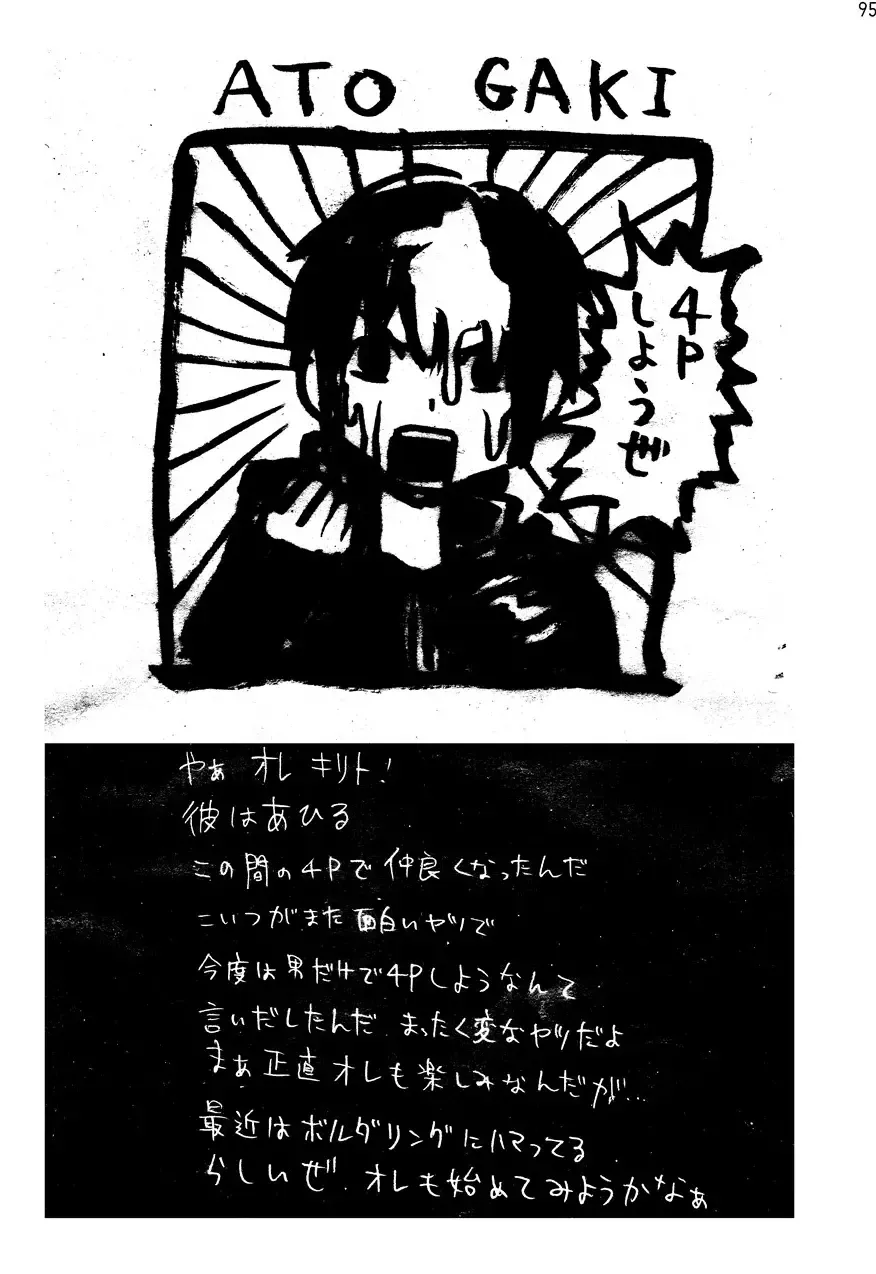 95
ATO GAKI
4P
しようぜ
やぁ オレ キリト!
彼はあひる
この間の4Pで仲良くなったんだ
こいつがまた面白いヤツで
今度は男だけで4Pしようなんて
言いだしたんだ まったく変なヤツだよ
まぁ正直オレも楽しみなんだが…
最近はボルダリングにハマってる
らしいぜ.オレも始めてみようかなぁ